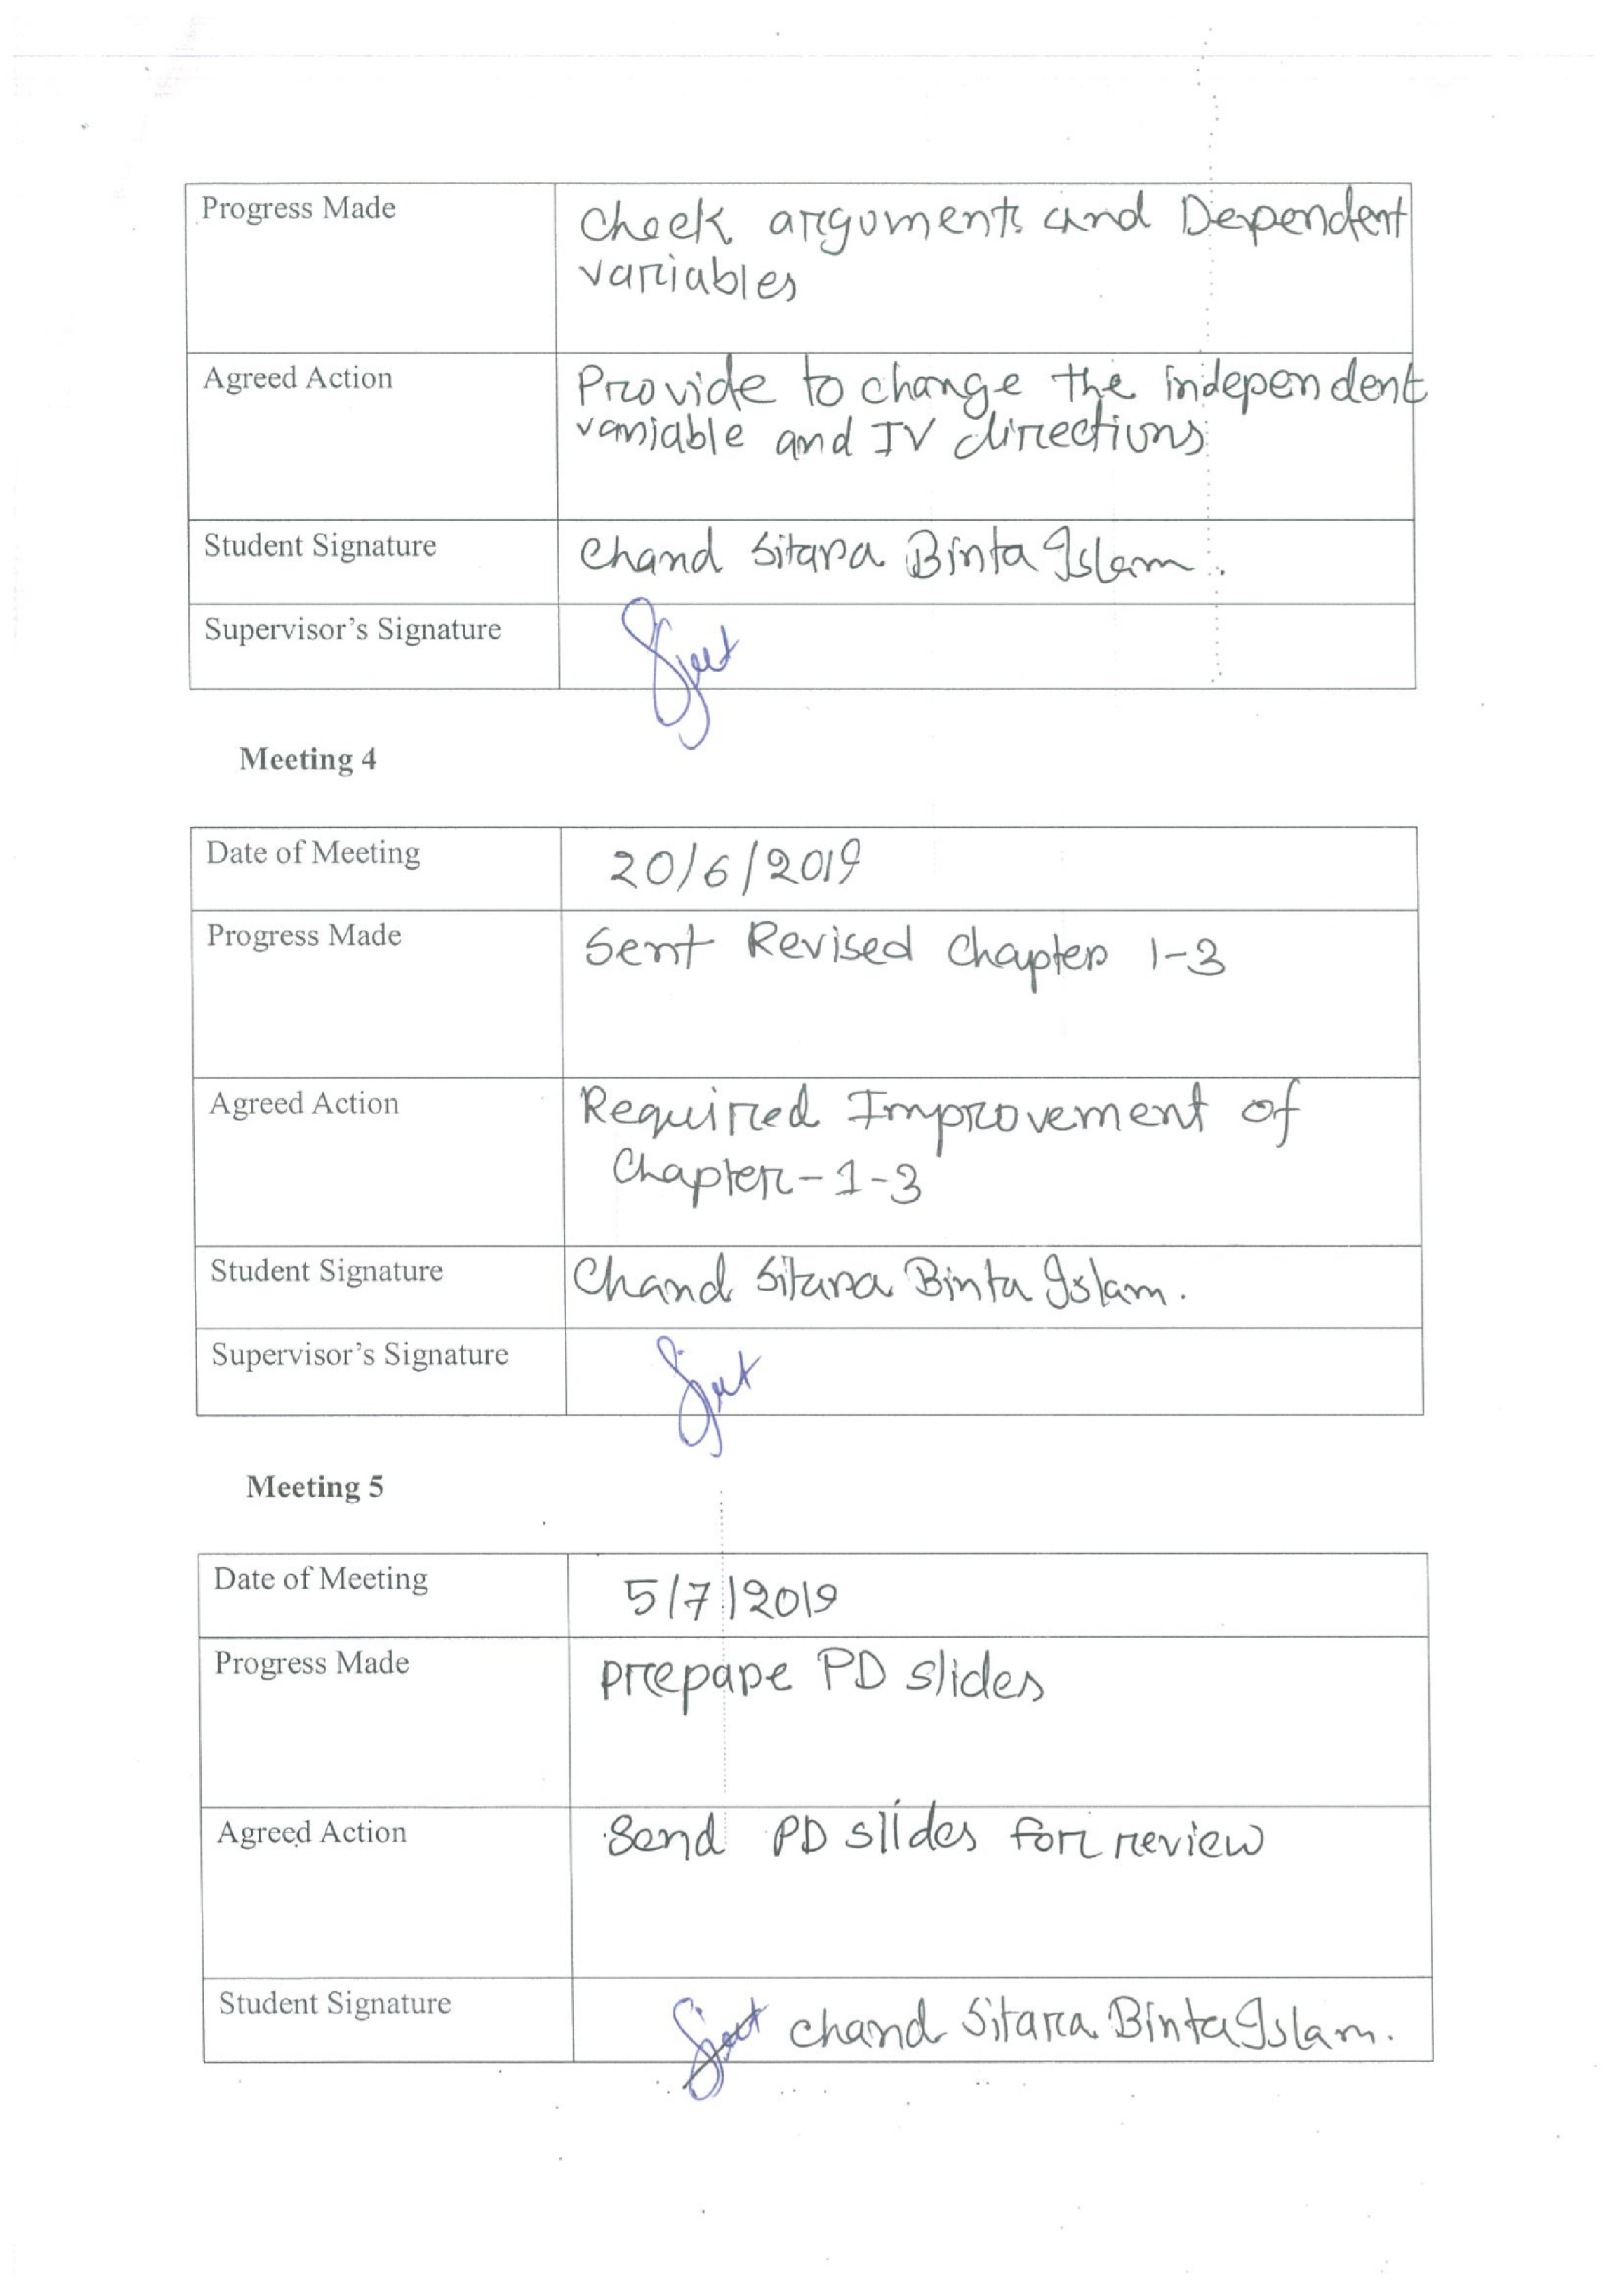 Progress Made
Check arguments and Dependent
variables
Agreed Action
Provide to change the independent
variable and IV directions
Student Signature
Chand Sitara Binta Islam.
Supervisor's Signature
Meeting 4
Date of Meeting
20/6/2019
Progress Made
Sent Revised Chapter 1-3
Agreed Action
Required Improvement of
Chapter-1-3
Student Signature
Chand Sitara Binta Islam.
Supervisor's Signature
Meeting 5
Date of Meeting
5/7/2019
Progress Made
Prepare PD slides
Agreed Action
Send PD slides for review
Student Signature
Chand Sitara Binta Islam.